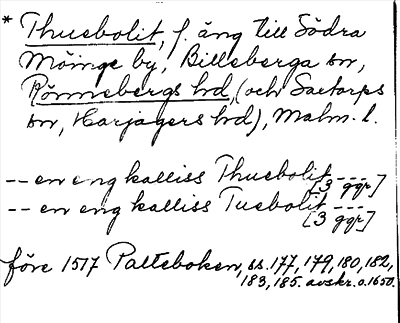 * Thuebolit, f. äng till Södra
Möinge by, Billeberga sn,
Rönnebergs hd, (och Saxtorps
sn, Harjagers hd), Malm. l.
-- en eng kalliss Thuebolit ---
[3 ggr]
-- en eng kalliss Tuebolit ---
[3 ggr]
före 1517 Palteboken, ss. 177, 179, 180, 182,
183, 185. avskr. o. 1650.